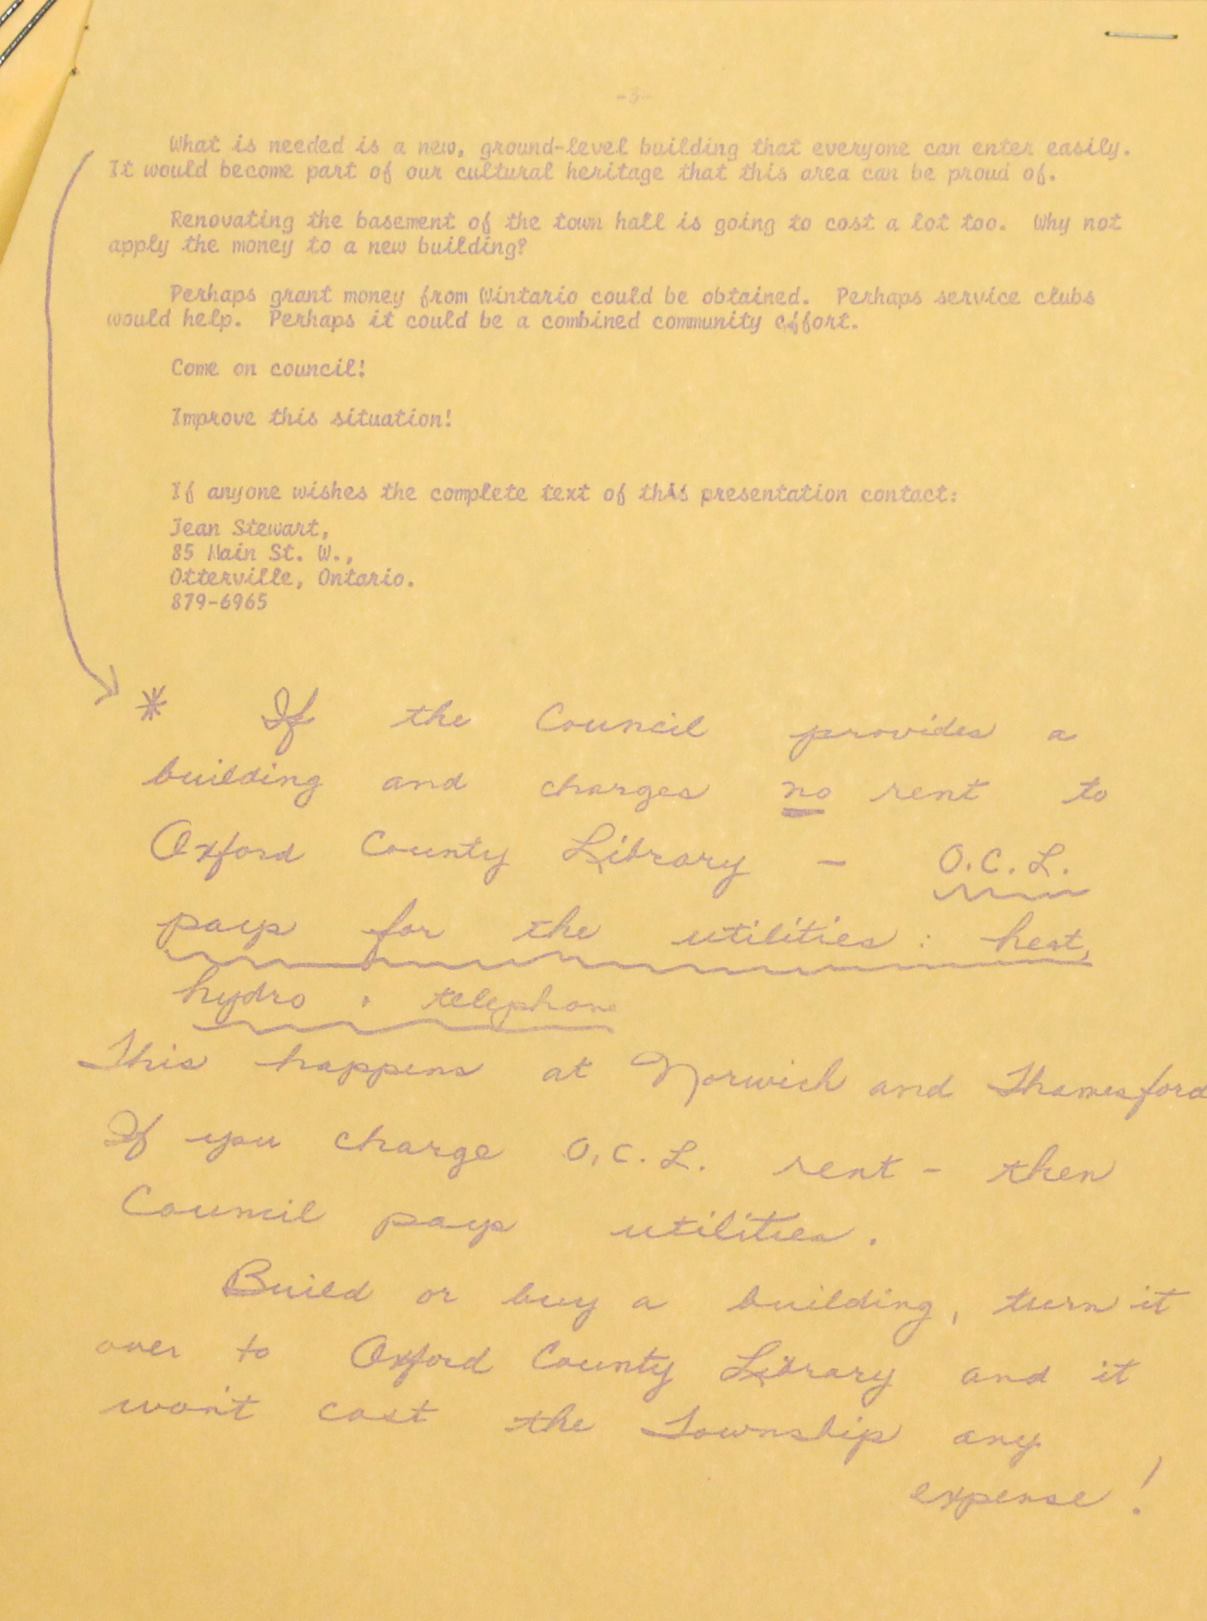 -3-
What is needed is a new, ground-level building that everyone can enter easily.
It would become part of our cultural heritage that this area can be proud of.
Renovating the basement of the town hall is going to cost a lot too. Why not
apply the money to a new building?
Perhaps grant money from Wintario could be obtained. Perhaps service clubs
would help. Perhaps it could be a combined community effort.
Come on council!
Improve this situation!
If anyone wishes the complete text of this presentation contact:
Jean Stewart,
85 Main St. W.,
Otterville, Ontario.
879-6965
* If the Council provides a
building and charges no rent to
Oxford County Library - O.C.L.
pays for the utilities : heat,
hydro . telephone
This happens at Norwich and Thamesford
If you charge O.C.L. rent - then
Council pays utilities.
Build or buy a building, turn it
over to Oxford County Library and it
won't cost the Township any
expense!